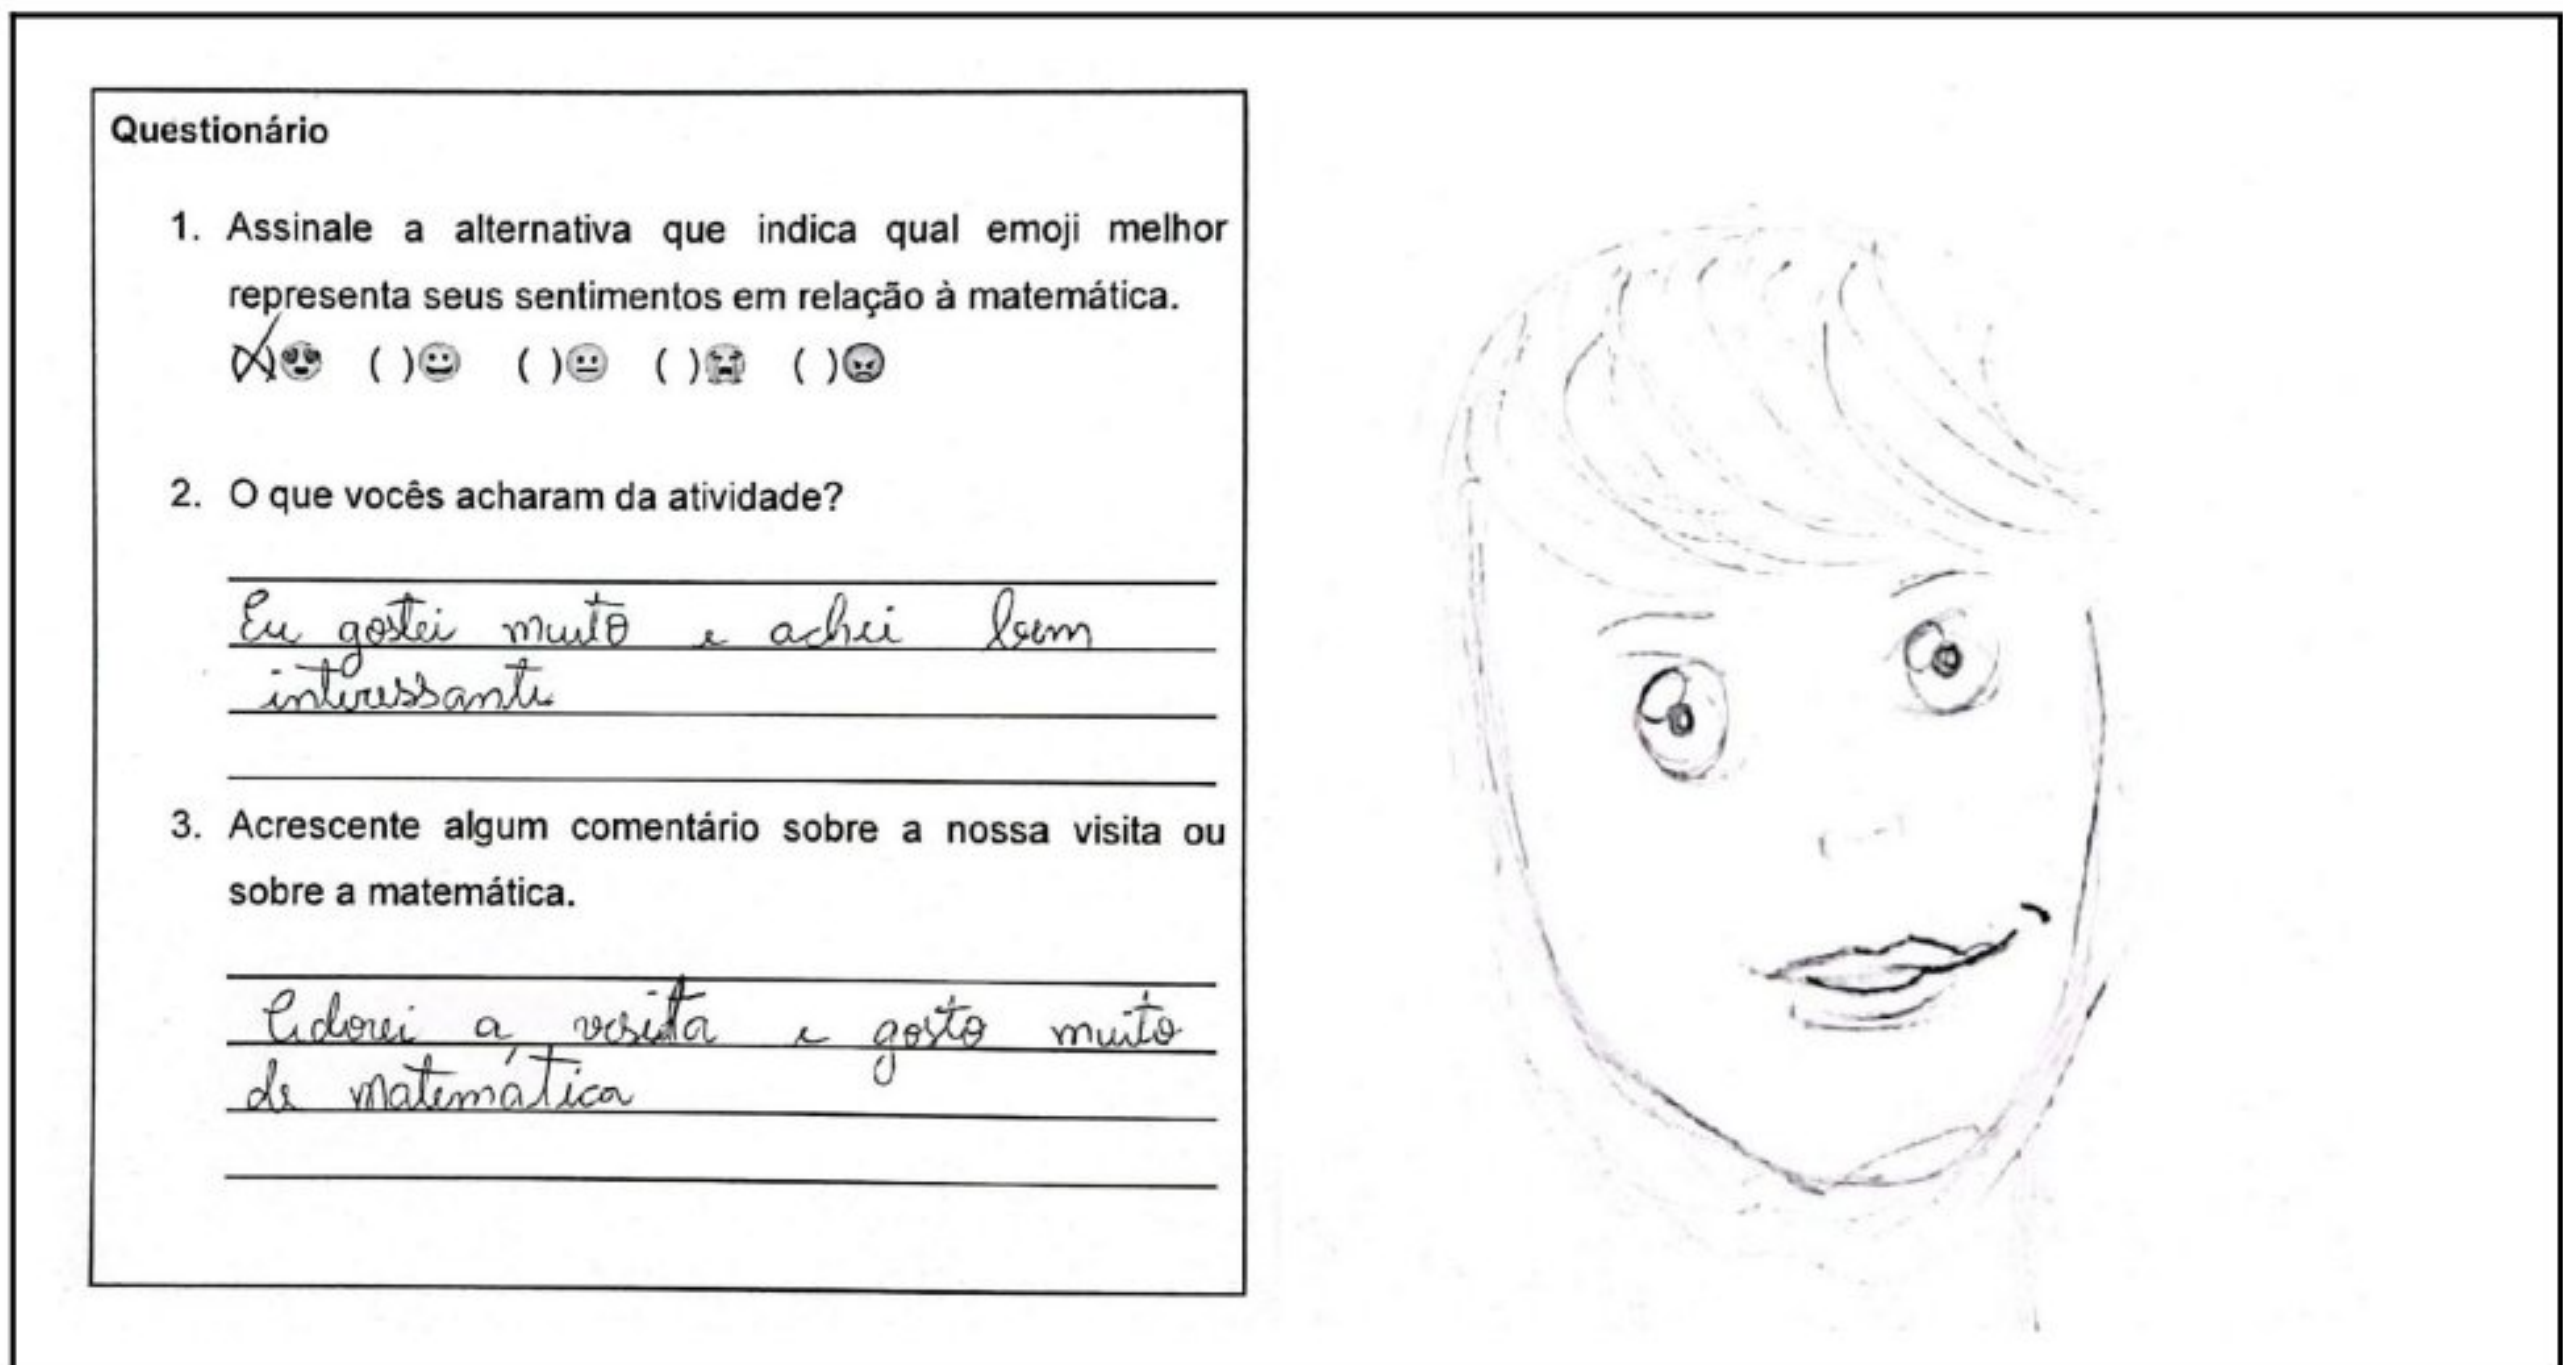 Questionário
1. Assinale a alternativa que indica qual emoji melhor
representa seus sentimentos em relação à matemática.
(X)😍 ( )😀 ( )😐 ( )😭 ( )😡
2. O que vocês acharam da atividade?
Eu gostei muito e achei bem
interessante
3. Acrescente algum comentário sobre a nossa visita ou
sobre a matemática.
Adorei a visita e gosto muito
de matemática